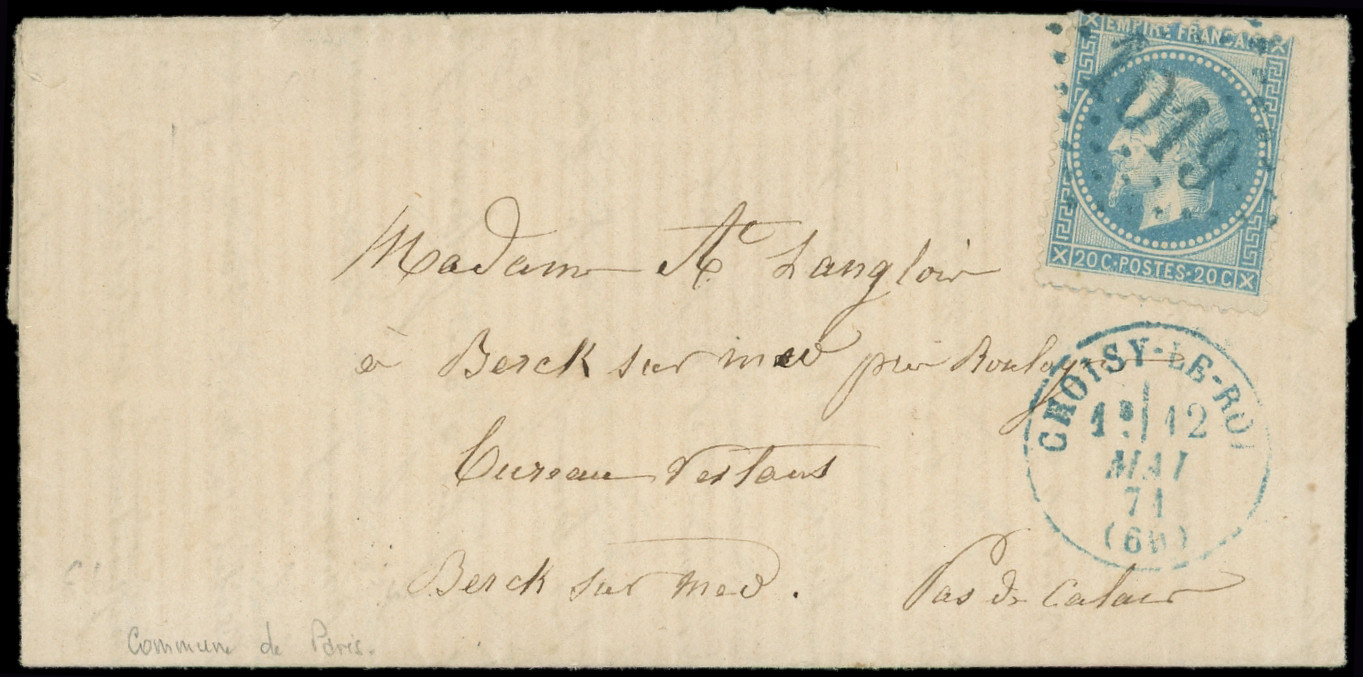 EMPIRE FRANÇAIS
1019
20C·POSTES·20C
Madame Ate Langlois
à Berck sur mer près Boulogne
CHOISY-LE-ROI
1E 12
MAI
71
(60)
bureau restant
Berck sur mer. Pas de Calais
Commune de Paris.